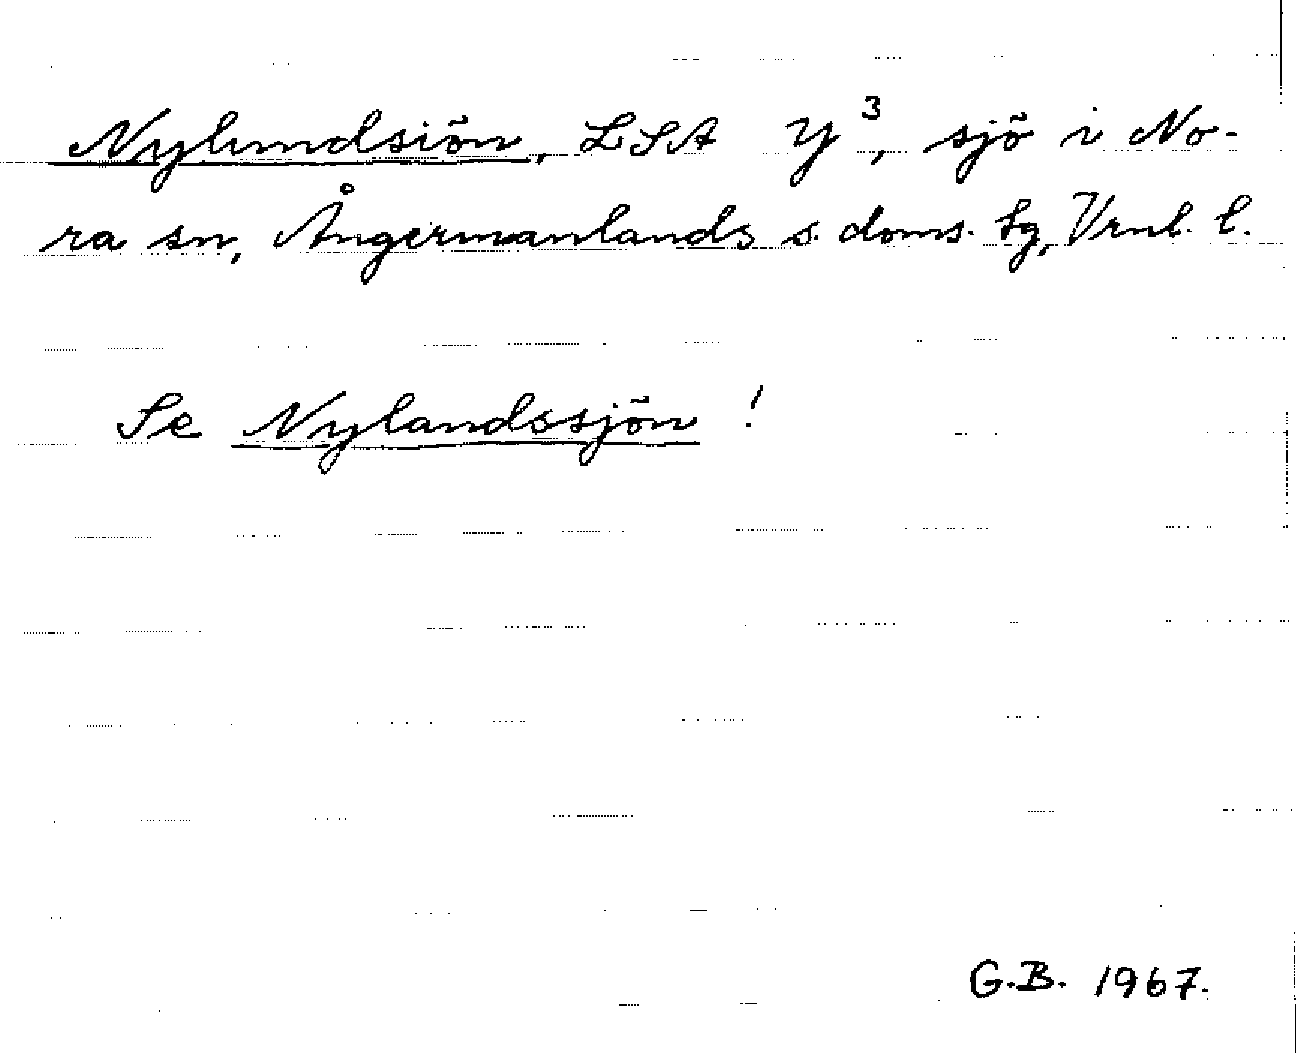 Nylundsiön, LSA Y³, sjö i No-
ra sn, Ångermanlands s. doms. tg, Vrnl. l.
Se Nylandssjön !
G.B. 1967.